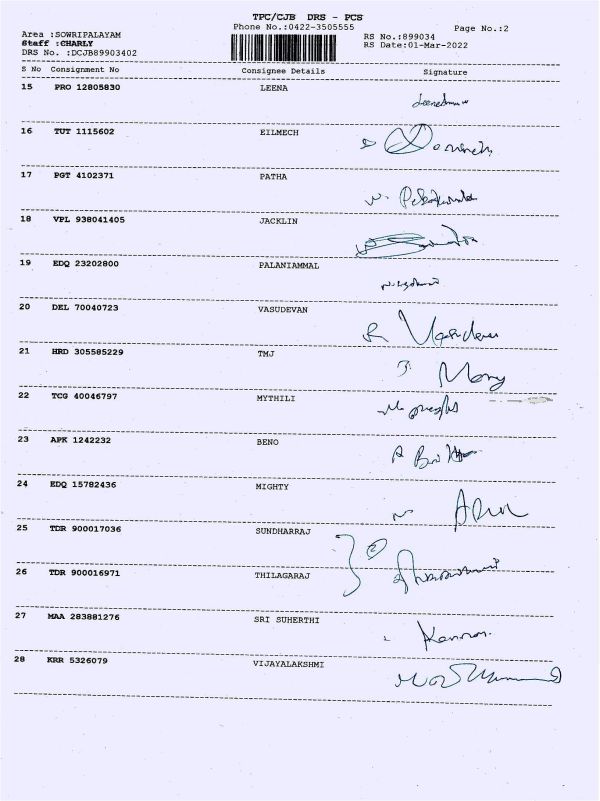 TPC/CJB DRS - PCS
Phone No.:0422-3505555
Page No.:2
Area :SOWRIPALAYAM
Staff :CHARLY
DRS No. :DCJB89903402
RS No.:899034
RS Date:01-Mar-2022
S No Consignment No Consignee Details Signature
15 PRO 12805830 LEENA
16 TUT 1115602 EILMECH
17 PGT 4102371 PATHA
18 VPL 938041405 JACKLIN
19 EDQ 23202800 PALANIAMMAL
20 DEL 70040723 VASUDEVAN
21 HRD 305585229 TMJ
22 TCG 40046797 MYTHILI
23 APK 1242232 BENO
24 EDQ 15782436 MIGHTY
25 TDR 900017036 SUNDHARRAJ
26 TDR 900016971 THILAGARAJ
27 MAA 283881276 SRI SUHERTHI
Kannan.
28 KRR 5326079 VIJAYALAKSHMI